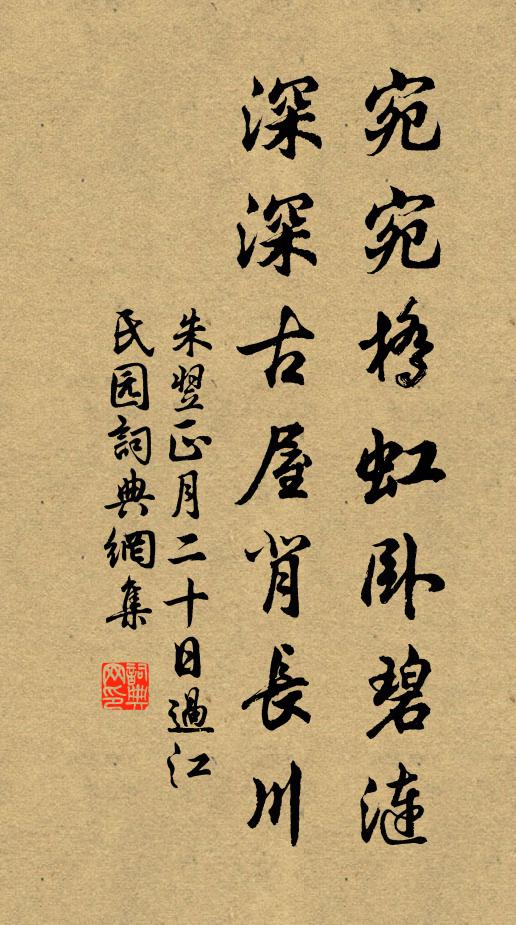 宛宛橋虹卧碧漣
深深古屋背長川
朱翌正月二十日過江
民园詞典網集
詞典网印